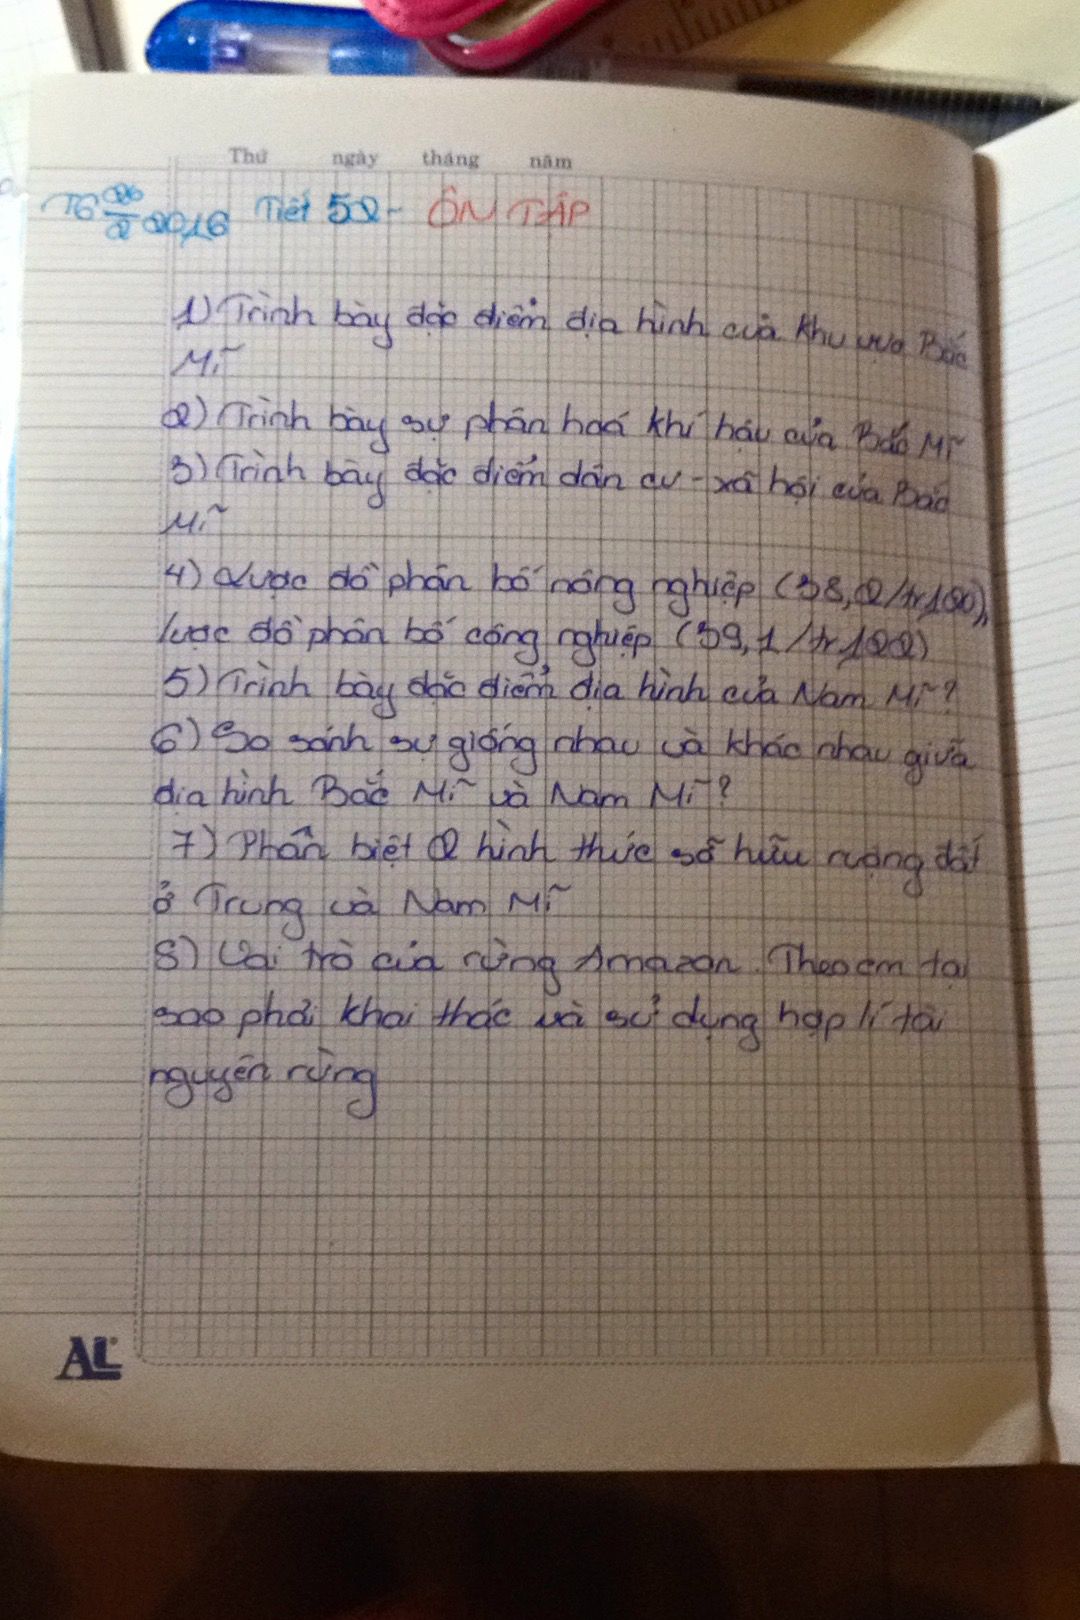 Thứ ngày tháng năm
T6 26/2 2016 Tiết 52- ÔN TẬP
1) Trình bày đặc điểm địa hình của khu vực Bắc
Mĩ
2) Trình bày sự phân hoá khí hậu của Bắc Mĩ
3) Trình bày đặc điểm dân cư - xã hội của Bắc
Mĩ
4) Lược đồ phân bố nông nghiệp (38,2/tr120),
lược đồ phân bố công nghiệp (39,1/tr122)
5) Trình bày đặc điểm địa hình của Nam Mĩ?
6) So sánh sự giống nhau và khác nhau giữa
địa hình Bắc Mĩ và Nam Mĩ?
7) Phân biệt 2 hình thức sở hữu ruộng đất
ở Trung và Nam Mĩ
8) Vai trò của rừng Amazon. Theo em tại
sao phải khai thác và sử dụng hợp lí tài
nguyên rừng
AL